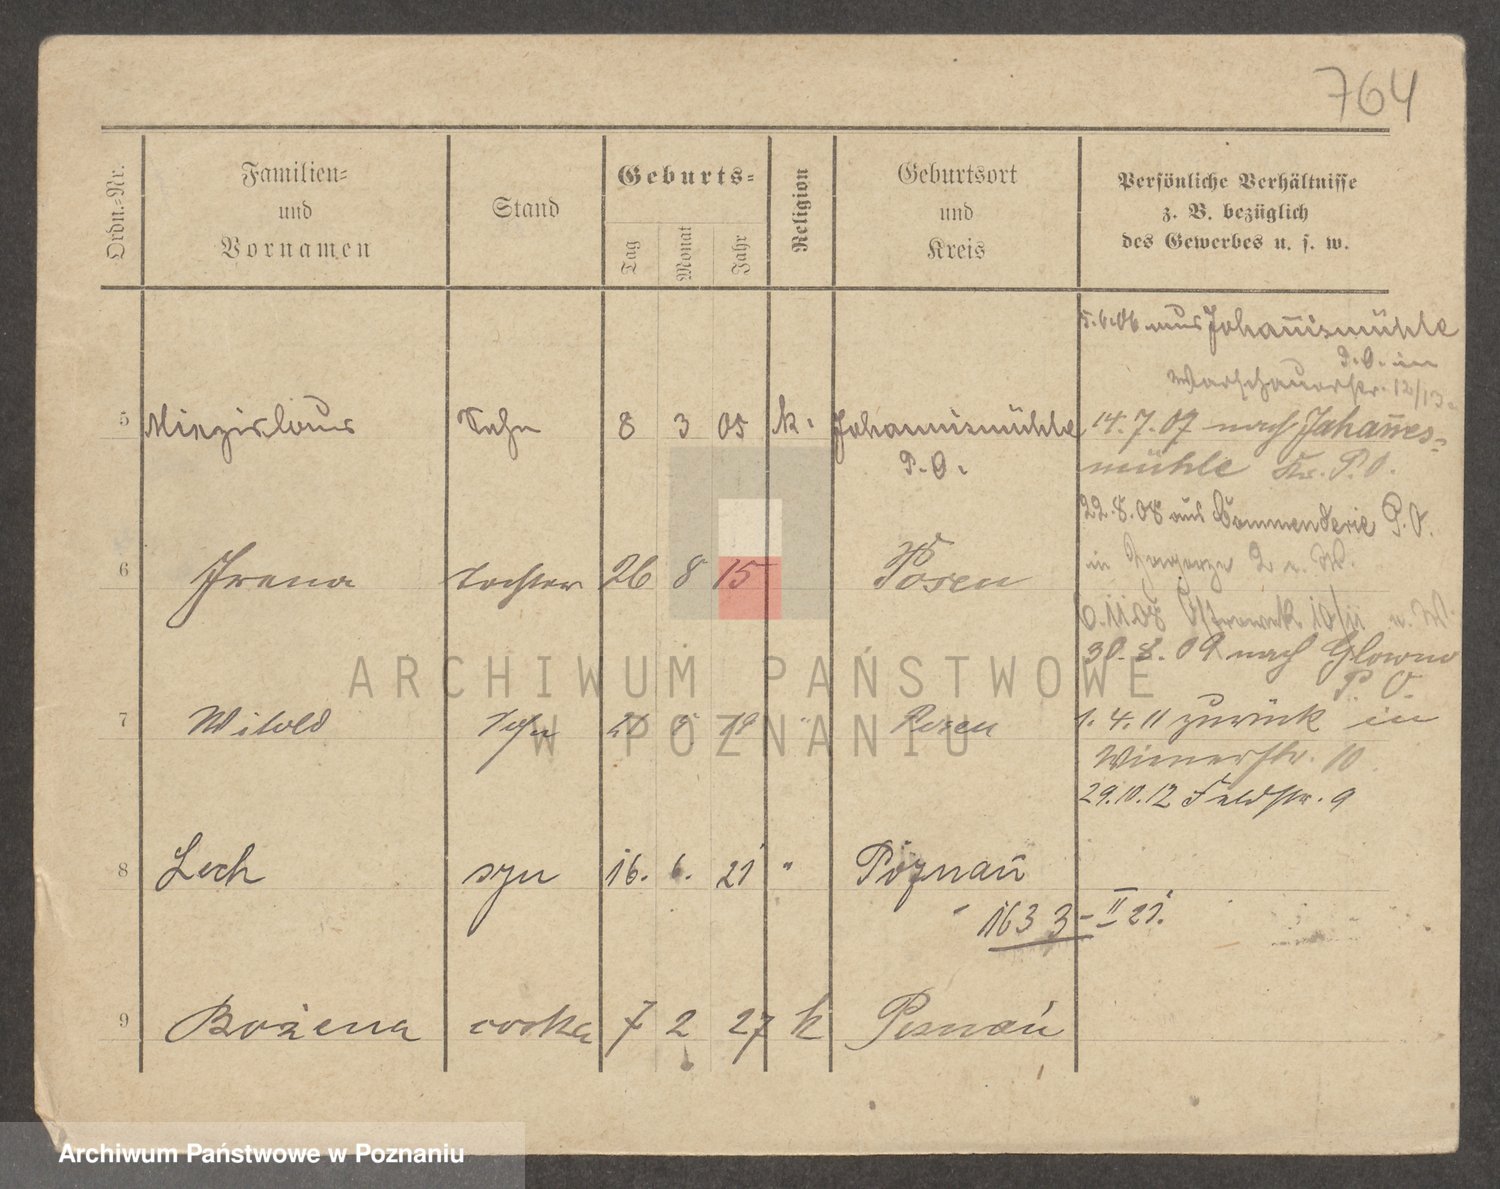 764
Ordn.-Nr.
Familien-
und
Vornamen
Stand
Geburts-
Tag
Monat
Jahr
Religion
Geburtsort
und
Kreis
Persönliche Verhältnisse
z. B. bezüglich
des Gewerbes u. s. w.
5.6.06 aus Johannismühle
P. O. in
Warschauerstr. 12/13
5 Miezislaus Sohn 8 3 05 k. Johannismühle
P. O.
14.7.07 nach Johannes-
mühle Kr. P. O.
22.8.08 aus Commenderie P. O.
in
6 Irena Tochter 26 8 15 Posen
6.11.08 Ostrowek 10/11
30.8.09 nach Glowno
P. O.
7 Witold Sohn 19 " Posen
1.4.11 zurück in
Wienerstr. 10
29.10.12 Feldstr. 9
8 Lech syn 16. 6. 21 " Poznań
" 163 3 - II 21.
9 Bożena córka 7 2 27 k Poznań
ARCHIWUM PAŃSTWOWE
W POZNANIU
Archiwum Państwowe w Poznaniu